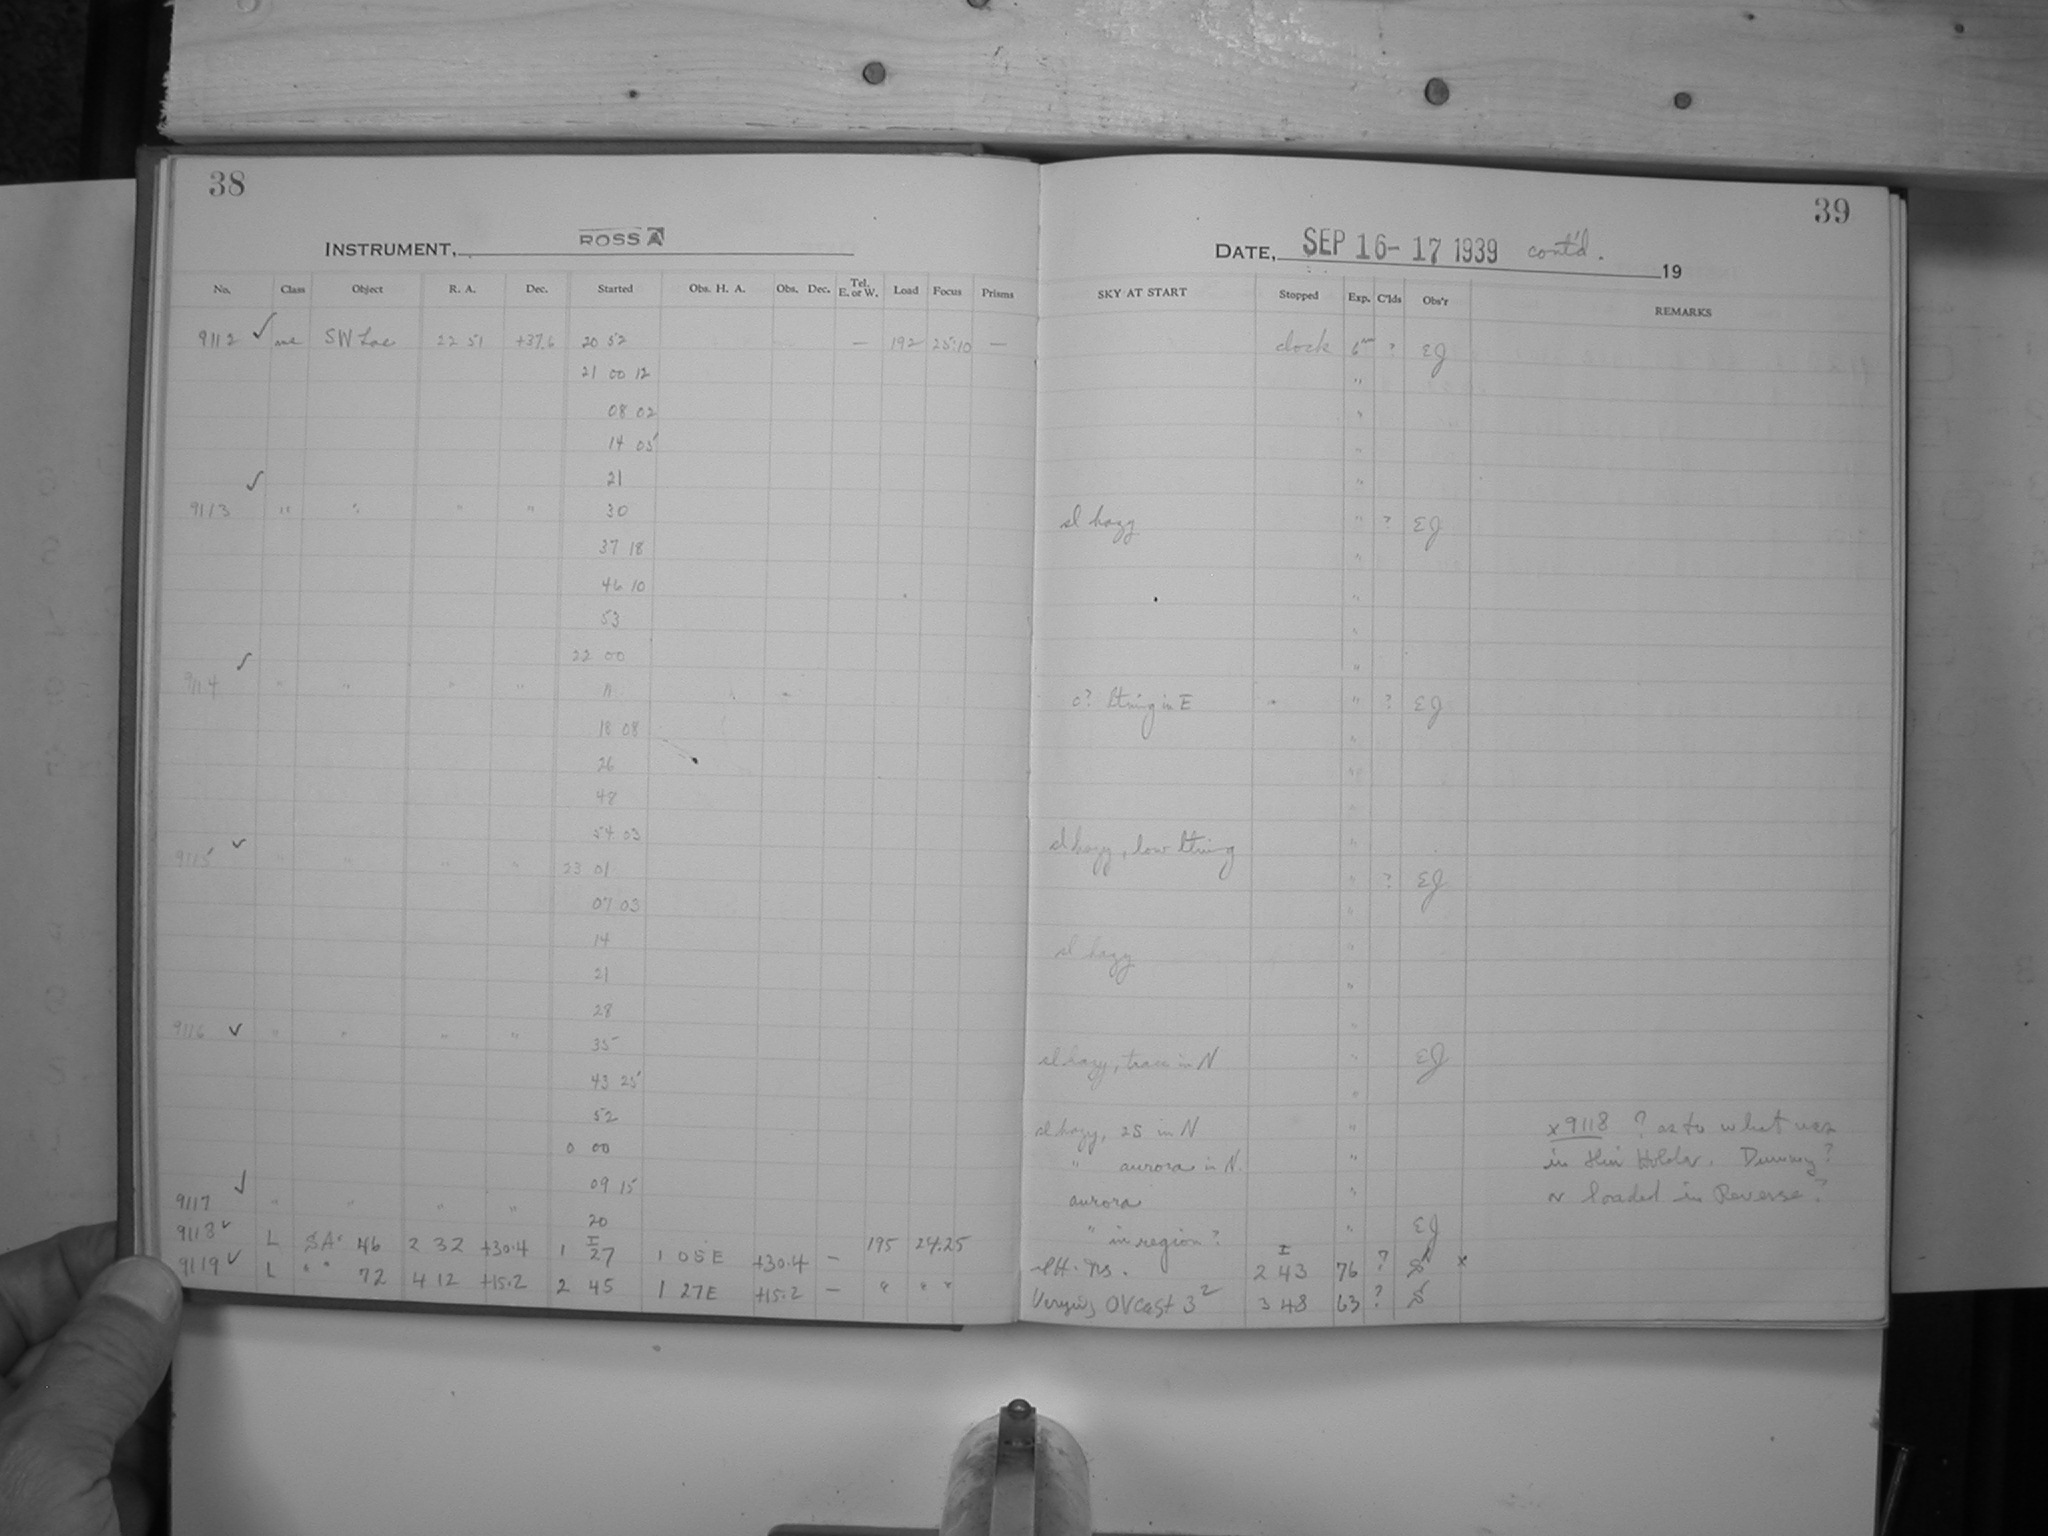 38
INSTRUMENT, ROSS A
No. Class Object R. A. Dec. Started Obs. H. A. Obs. Dec. Tel. E. or W. Load Focus Prisms
9112 ✓ me SW Lac 22 51 +37.6 20 52 — 192 25:10 —
21 00 12
08 02
14 05
21
9113 ✓ " " " " 30
37 18
46 10
53
22 00
9114 ✓ " " " " 11
18 08
26
48
54 03
9115 ✓ " " " " 23 01
07 03
14
21
28
9116 ✓ " " " " 35
43 25
52
0 00
09 15
9117 ✓ " " " " 20
9118 ✓ L SA 46 2 32 +30.4 1 27 1 05E +30.4 — 195 24.25
9119 ✓ L " " 72 4 12 +15.2 2 45 1 27E +15.2 — " " "
39
DATE, SEP 16-17 1939 cont'd. 19
SKY AT START Stopped Exp. C'lds Obs'r REMARKS
clock 6m ? EJ
"
"
"
"
sl hazy " ? EJ
"
"
"
"
o? ltning in E " ? EJ
"
"
"
sl hazy, low ltning "
" ? EJ
"
sl hazy "
"
"
sl hazy, traces in N " EJ
"
sl hazy, 2S in N "
" aurora in N. "
aurora "
" in region? " EJ
2 43 76 ? S x
Varying OVcast 3 2 3 48 63 ? S
x 9118 ? as to what was
in this Holder. Dummy?
or loaded in Reverse?